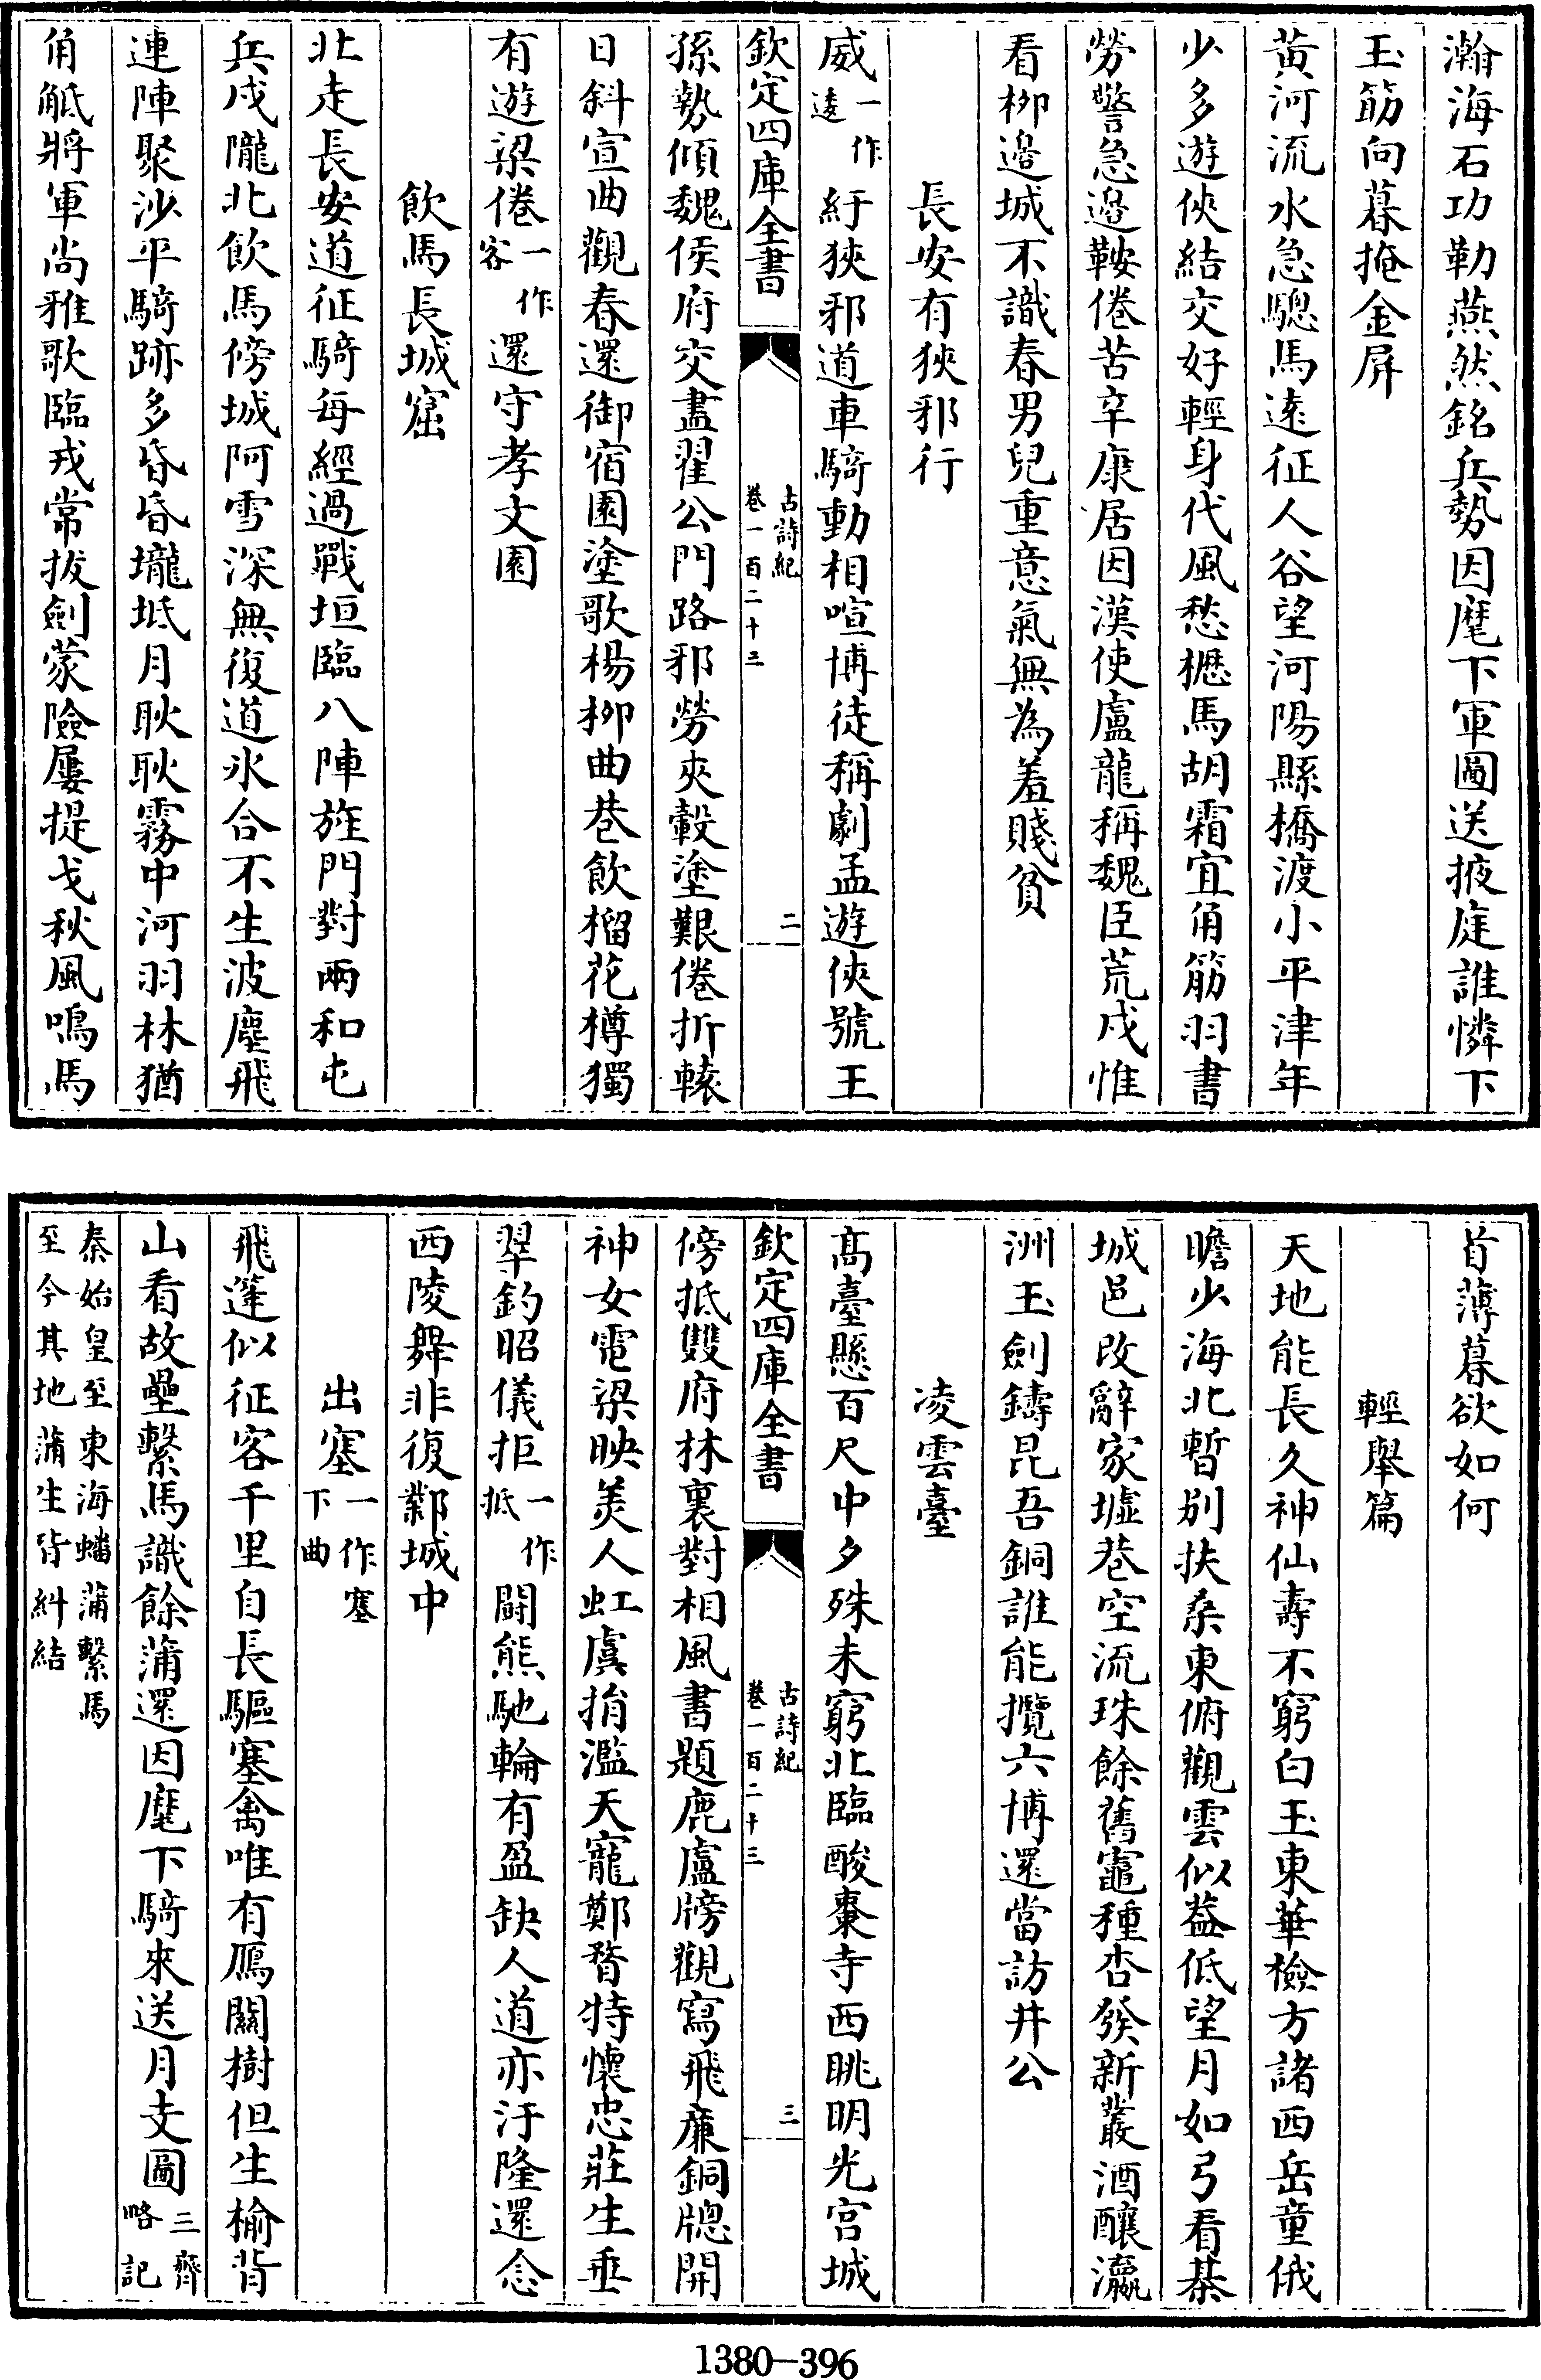 瀚海石功勒燕然銘兵勢因麾下軍圖送掖庭誰憐下
玉筯向暮掩金屏
黃河流水急驄馬遠征人谷望河陽縣橋渡小平津年
少多遊俠結交好輕身代風愁櫪馬胡霜宜角筋羽書
勞警急邉鞍倦苦辛康居因漢使盧龍稱魏臣荒戍惟
看柳邉城不識春男兒重意氣無為羞賤貧
長安有狹邪行
威一作逶紆狹邪道車騎動相喧博徒稱劇孟遊俠號王
欽定四庫全書
古詩紀
卷一百二十三
二
孫勢傾魏侯府交盡翟公門路邪勞夾轂塗艱倦折轅
日斜宣曲觀春還御宿園塗歌楊柳曲巷飲榴花樽獨
有遊梁倦一作客還守孝文園
飲馬長城窟
北走長安道征騎每經過戰垣臨八陣旌門對兩和屯
兵戍隴北飲馬傍城阿雪深無復道氷合不生波塵飛
連陣聚沙平騎跡多昏昏壠坻月耿耿霧中河羽林猶
角觝將軍尚雅歌臨戎常拔劍蒙險屢提戈秋風鳴馬
首薄暮欲如何
輕舉篇
天地能長久神仙壽不窮白玉東華檢方諸西岳童俄
瞻少海北暫别扶桑東俯觀雲似葢低望月如弓看棊
城邑改辭家墟巷空流珠餘舊竈種杏發新叢酒釀瀛
洲玉劍鑄昆吾銅誰能攬六博還當訪井公
凌雲臺
高臺懸百尺中夕殊未窮北臨酸棗寺西眺明光宫城
欽定四庫全書
古詩紀
卷一百二十三
三
傍抵雙府林裏對相風書題鹿盧牓觀寫飛廉銅牕開
神女電梁映美人虹虞捐濫天寵鄭瞀特懷忠莊生垂
翠釣昭儀拒一作抵鬬熊馳輪有盈缺人道亦汙隆還念
西陵舞非復鄴城中
出塞一作塞下曲
飛蓬似征客千里自長驅塞禽唯有鴈關樹但生榆背
山看故壘繫馬識餘蒲還因麾下騎來送月支圖三齊略記
秦始皇至東海蟠蒲繫馬
至今其地蒲生皆糾結
1380-396